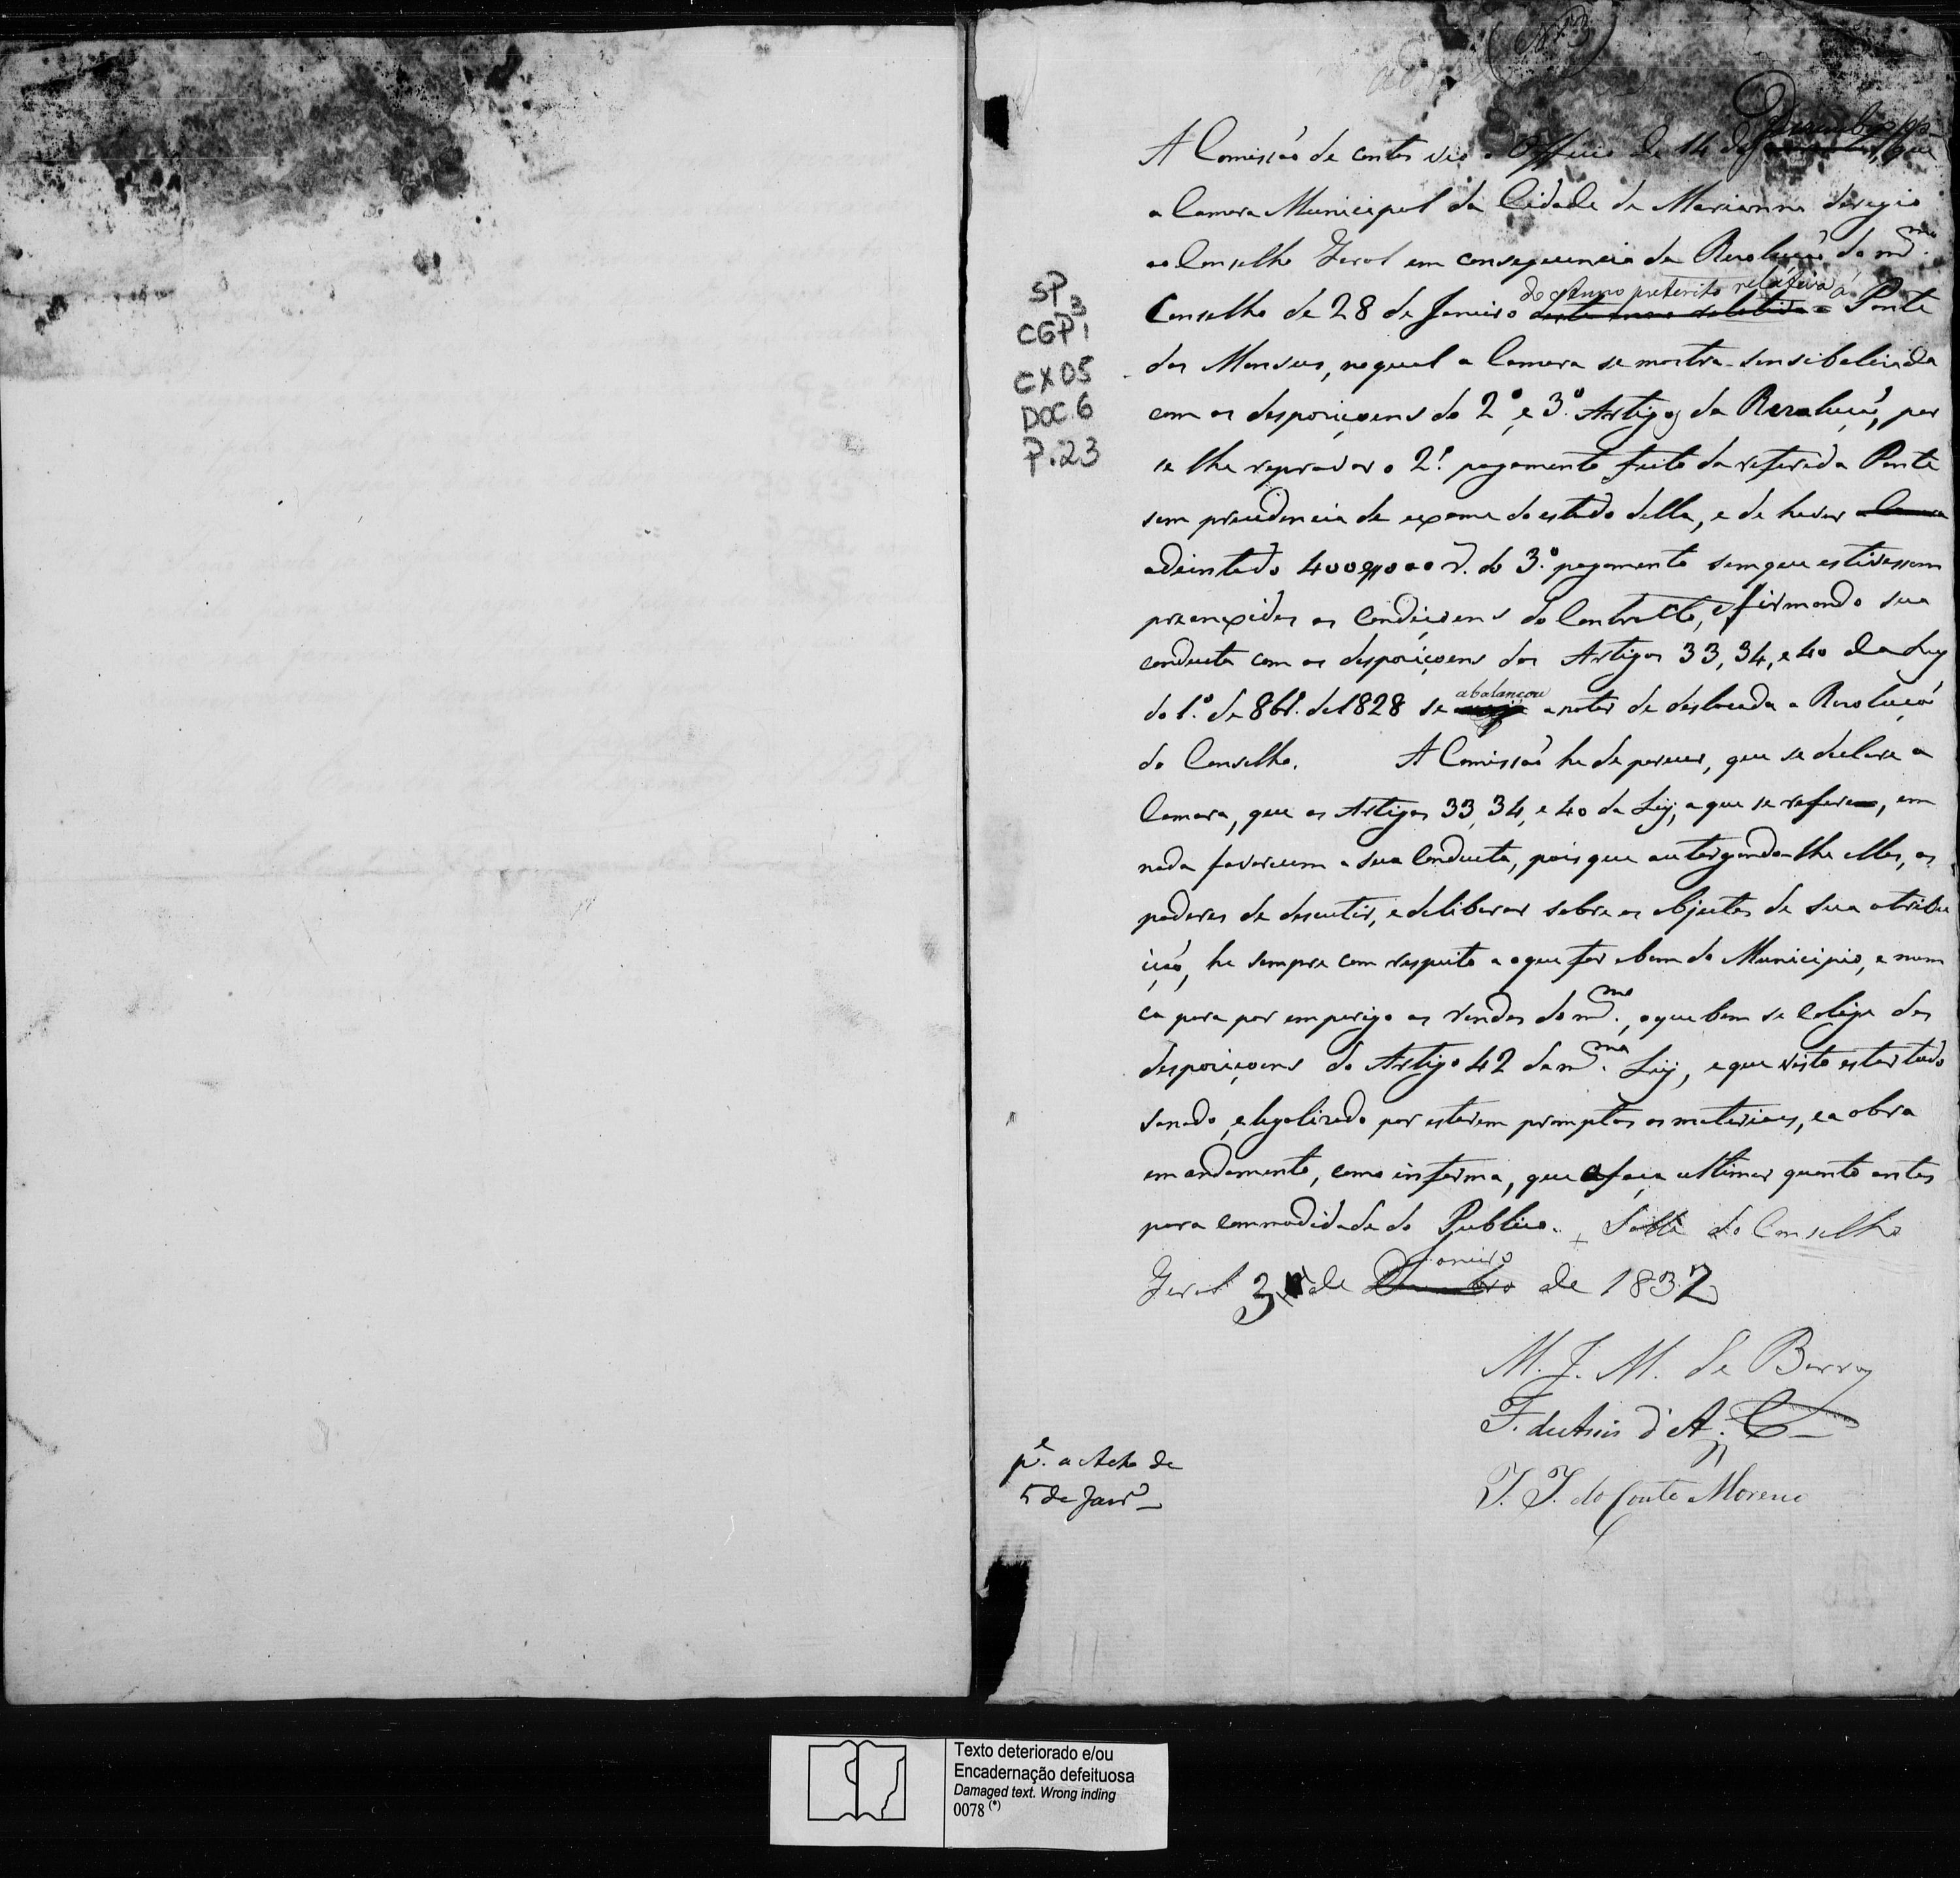 Nº 3
A Comissaõ de contas vio o Officio de 14 de Dezembro pp. que
a Camara Municipal da Cidade de Marianna deregio
ao Conselho Geral em consequencia da Resoluçaõ do m.mo
Conselho de 28 de Janeiro do Anno preterito relativa á Ponte
dos Monsus, no qual a Camara se mostra sensibelecida
com as desposiçoens do 2º e 3º Artigos da Rezoluçaõ, por
se lhe reprovar o 2º pagamento feito da referida Ponte
sem precedencia de exame do estado della, e de haver
adeintado 400$000 r. do 3º pagamento sem que estivessem
preenxidas as Condiçoens do Contracto, e firmando sua
conducta com as desposiçoens dos Artigos 33, 34, e 40 da Ley
do 1º de 8br.º de 1828 se abalançou a notar de deslocada a Resoluçaõ
do Conselho. A Comissaõ he de parecer, que se declare a
Camara, que os Artigos 33, 34, e 40 da Ley, a que se refere, em
nada favorecem a sua Conducta, pois que outorgando-lhe elles, os
poderes de descutir, e deliberar sobre os objectos de sua atribu
içaõ, he sempre com respeito a o que for a bem do Municipio, e nun
ca para por em perigo as rendas do m.mo, o que bem se Colige das
desposiçoens do Artigo 42 da m.ma Ley, e que visto estar tudo
sanado, e legalizado por estarem promptos os materiaes, e a obra
em andamento, como informa, que a faça ultimar quanto antes
para commodidade do Publico. Salla do Conselho
Geral 3 de Janeiro de 1832
M. J. M. de Barros
F. de Assis d'A.
J. J. do Couto Moreno
p.e a Acta de
5 de Janr.º
SP 3
CGP 1
CX05
DOC.6
P.23
Texto deteriorado e/ou
Encadernação defeituosa
Damaged text. Wrong inding
0078 (*)